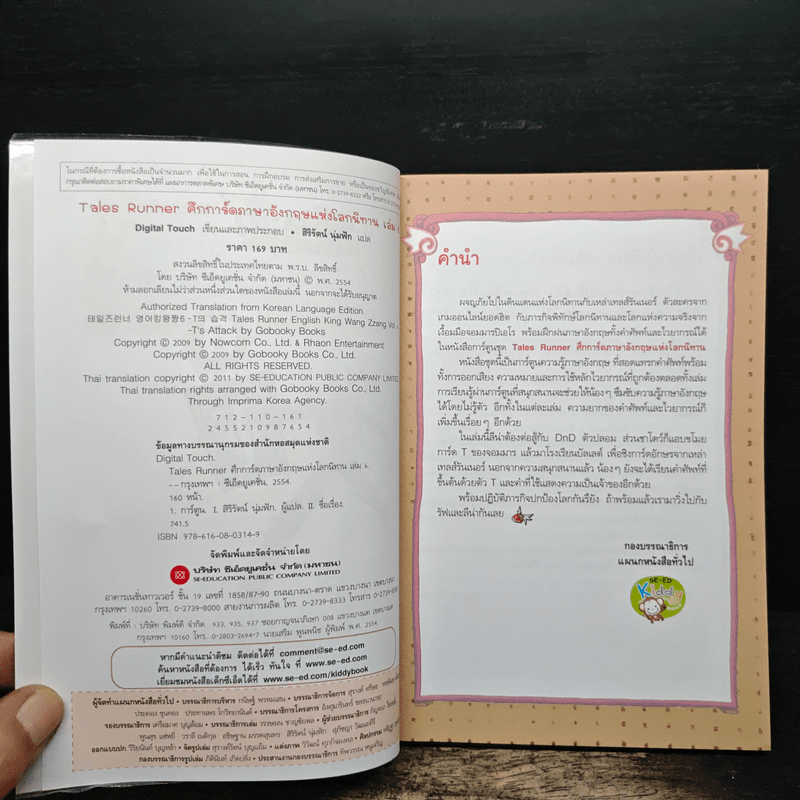 ในกรณีที่ต้องการซื้อหนังสือเป็นจำนวนมาก เพื่อใช้ในการสอน การฝึกอบรม การส่งเสริมการขาย หรือเป็นของขวัญพิเศษ
กรุณาติดต่อสอบถามราคาพิเศษได้ที่ แผนกการตลาดพิเศษ บริษัท ซีเอ็ดยูเคชั่น จำกัด (มหาชน) โทร. 0-2739-8222 หรือ โทรสาร
Tales Runner ศึกการ์ดภาษาอังกฤษแห่งโลกนิทาน เล่ม
Digital Touch เขียนและภาพประกอบ • สิริรัตน์ นุ่มฟัก แปล
ราคา 169 บาท
สงวนลิขสิทธิ์ในประเทศไทยตาม พ.ร.บ. ลิขสิทธิ์
โดย บริษัท ซีเอ็ดยูเคชั่น จำกัด (มหาชน) © พ.ศ. 2554
ห้ามลอกเลียนไม่ว่าส่วนหนึ่งส่วนใดของหนังสือเล่มนี้ นอกจากจะได้รับอนุญาต
Authorized Translation from Korean Language Edition.
테일즈런너 영어킹왕짱6-T의 습격 Tales Runner English King Wang Zzang Vol
-T's Attack by Gobooky Books
Copyright © 2009 by Nowcom Co., Ltd. & Rhaon Entertainment
Copyright © 2009 by Gobooky Books Co., Ltd.
ALL RIGHTS RESERVED.
Thai translation copyright © 2011 by SE-EDUCATION PUBLIC COMPANY LIMITED
Thai translation rights arranged with Gobooky Books Co., Ltd.
Through Imprima Korea Agency.
712-110-161
2455210987654
ข้อมูลทางบรรณานุกรมของสำนักหอสมุดแห่งชาติ
Digital Touch.
Tales Runner ศึกการ์ดภาษาอังกฤษแห่งโลกนิทาน เล่ม 6.
--กรุงเทพฯ : ซีเอ็ดยูเคชั่น, 2554.
160 หน้า.
1. การ์ตูน. I. สิริรัตน์ นุ่มฟัก, ผู้แปล. II. ชื่อเรื่อง.
741.5
ISBN 978-616-08-0314-9
จัดพิมพ์และจัดจำหน่ายโดย
บริษัท ซีเอ็ดยูเคชั่น จำกัด (มหาชน)
SE-EDUCATION PUBLIC COMPANY LIMITED
อาคารเนชั่นทาวเวอร์ ชั้น 19 เลขที่ 1858/87-90 ถนนบางนา-ตราด แขวงบางนา เขตบางนา
กรุงเทพฯ 10260 โทร. 0-2739-8000 สายงานการผลิต โทร. 0-2739-8333 โทรสาร
พิมพ์ที่ : บริษัท พิมพ์ดี จำกัด 933, 935, 937 ซอยกาญจนาภิเษก 008 แขวงบางแค เขตบางแค
กรุงเทพฯ 10160 โทร. 0-2803-2694-7 นายเสริม พูนพนิช ผู้พิมพ์ พ.ศ. 2554
หากมีคำแนะนำติชม ติดต่อได้ที่ comment@se-ed.com
ค้นหาหนังสือที่ต้องการ ได้เร็ว ทันใจ ที่ www.se-ed.com
เยี่ยมชมหนังสือเด็กซีเอ็ดได้ที่ www.se-ed.com/kiddybook
ผู้จัดทำแผนกหนังสือทั่วไป • บรรณาธิการบริหาร • บรรณาธิการจัดการ
• บรรณาธิการโครงการ
รองบรรณาธิการ • บรรณาธิการเล่ม • ผู้ช่วยบรรณาธิการ
สิริรัตน์ นุ่มฟัก
ออกแบบปก • จัดรูปเล่ม • แต่งภาพ
กองบรรณาธิการรูปเล่ม • ประสานงานกองบรรณาธิการ
คำนำ
ผจญภัยไปในดินแดนแห่งโลกนิทานกับเหล่าเทลส์รันเนอร์ ตัวละครจาก
เกมออนไลน์ยอดฮิต กับภารกิจพิทักษ์โลกนิทานและโลกแห่งความจริงจาก
เงื้อมมือจอมมารปิแอโร พร้อมฝึกฝนภาษาอังกฤษทั้งคำศัพท์และไวยากรณ์ได้
ในหนังสือการ์ตูนชุด Tales Runner ศึกการ์ดภาษาอังกฤษแห่งโลกนิทาน
หนังสือชุดนี้เป็นการ์ตูนความรู้ภาษาอังกฤษ ที่สอดแทรกคำศัพท์พร้อม
ทั้งการออกเสียง ความหมายและการใช้หลักไวยากรณ์ที่ถูกต้องตลอดทั้งเล่ม
การเรียนรู้ผ่านการ์ตูนที่สนุกสนานจะช่วยให้น้องๆ ซึมซับความรู้ภาษาอังกฤษ
ได้โดยไม่รู้ตัว อีกทั้งในแต่ละเล่ม ความยากของคำศัพท์และไวยากรณ์ก็
เพิ่มขึ้นเรื่อยๆ อีกด้วย
ในเล่มนี้ลีน่าต้องต่อสู้กับ DnD ตัวปลอม ส่วนชาโดว์ก็แอบขโมย
การ์ด T ของจอมมาร แล้วมาโรงเรียนบัลเลต์ เพื่อชิงการ์ดอักษรจากเหล่า
เทลส์รันเนอร์ นอกจากความสนุกสนานแล้ว น้องๆ ยังจะได้เรียนคำศัพท์ที่
ขึ้นต้นด้วยตัว T และคำที่ใช้แสดงความเป็นเจ้าของอีกด้วย
พร้อมปฏิบัติภารกิจปกป้องโลกกันรึยัง ถ้าพร้อมแล้วเรามาวิ่งไปกับ
รัฟและลีน่ากันเลย
กองบรรณาธิการ
แผนกหนังสือทั่วไป
SE-ED
Kiddy